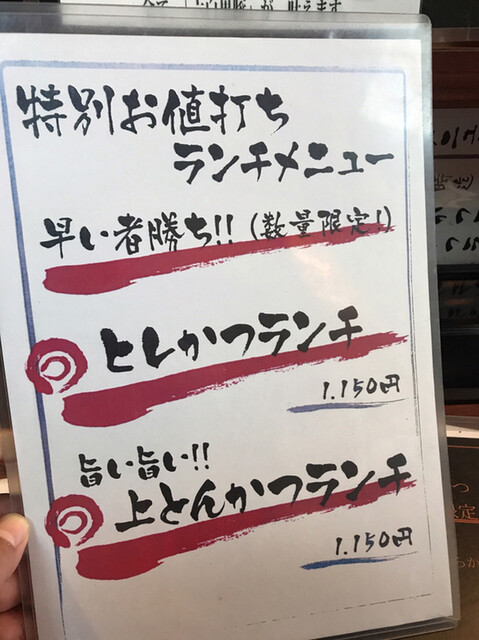 特別お値打ち
ランチメニュー
早い者勝ち!!(数量限定!)
とんかつランチ
1.150円
旨い旨い!!
上とんかつランチ
1.150円